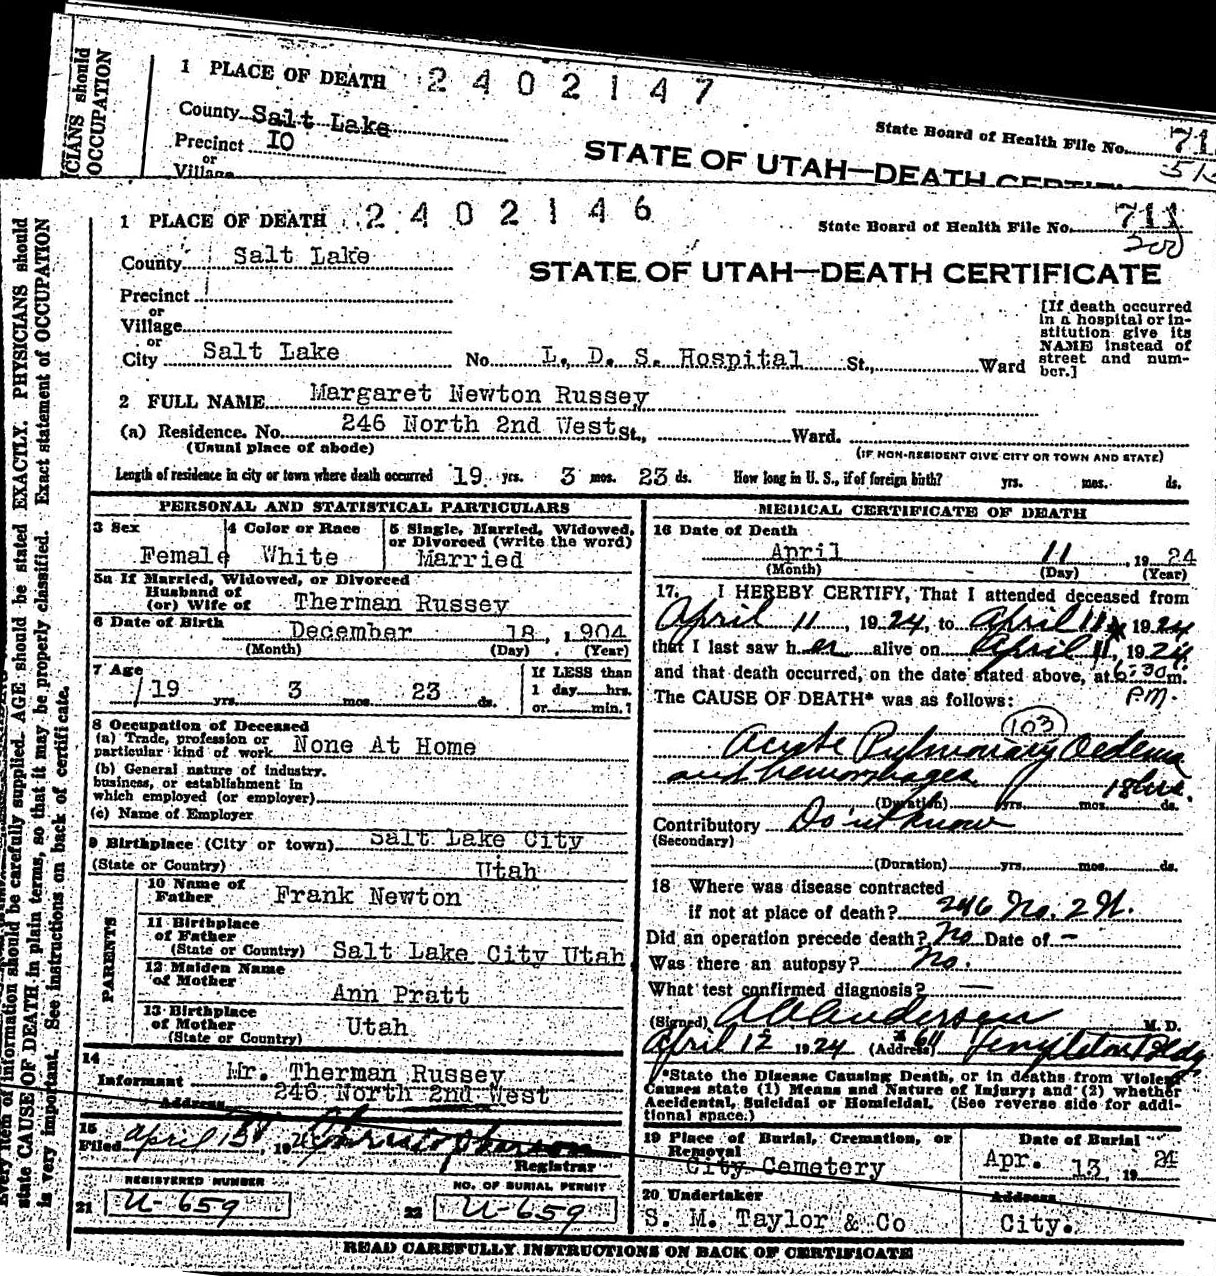 1 PLACE OF DEATH 2402147
County Salt Lake
State Board of Health File No. 71
Precinct IO
or
STATE OF UTAH—DEATH CERTIF
Village
CIANS should
OCCUPATION
1 PLACE OF DEATH 2402146
State Board of Health File No. 711
200
County Salt Lake
STATE OF UTAH—DEATH CERTIFICATE
Precinct
or
Village
or
City Salt Lake No. L. D. S. Hospital St., Ward
[If death occurred
in a hospital or in-
stitution give its
NAME instead of
street and num-
ber.]
2 FULL NAME Margaret Newton Russey
(a) Residence. No. 246 North 2nd West St., Ward.
(Usual place of abode)
(IF NON-RESIDENT GIVE CITY OR TOWN AND STATE)
Length of residence in city or town where death occurred 19 yrs. 3 mos. 23 ds. How long in U. S., if of foreign birth? yrs. mos. ds.
PERSONAL AND STATISTICAL PARTICULARS
3 Sex
Female
4 Color or Race
White
5 Single, Married, Widowed,
or Divorced (write the word)
Married
5a If Married, Widowed, or Divorced
Husband of
(or) Wife of Therman Russey
6 Date of Birth
December 18, 1904
(Month) (Day) (Year)
7 Age
19 yrs. 3 mos. 23 ds.
If LESS than
1 day hrs.
or min.?
8 Occupation of Deceased
(a) Trade, profession or
particular kind of work None At Home
(b) General nature of industry,
business, or establishment in
which employed (or employer)
(c) Name of Employer
9 Birthplace (City or town) Salt Lake City
(State or Country) Utah
PARENTS
10 Name of
Father Frank Newton
11 Birthplace
of Father
(State or Country) Salt Lake City Utah
12 Maiden Name
of Mother
Ann Pratt
13 Birthplace
of Mother Utah
(State or Country)
14
Informant Mr. Therman Russey
Address 246 North 2nd West
15
Filed April 15, 19
Registrar
REGISTERED NUMBER
21 U-659
NO. OF BURIAL PERMIT
22 U-659
MEDICAL CERTIFICATE OF DEATH
16 Date of Death
April 11, 1924
(Month) (Day) (Year)
17. I HEREBY CERTIFY, That I attended deceased from
April 11, 1924, to April 11, 1924
that I last saw her alive on April 11, 1924
and that death occurred, on the date stated above, at 6:30 m.
P.M.
The CAUSE OF DEATH* was as follows:
103
Acute Pulmonary Oedema
and hemorrhages 18 hrs.
(Duration) yrs. mos. ds.
Contributory Do'nt know
(Secondary)
(Duration) yrs. mos. ds.
18 Where was disease contracted
if not at place of death? 246 No. 2 W.
Did an operation precede death? No Date of –
Was there an autopsy? No.
What test confirmed diagnosis? —
(Signed) A C Anderson M. D.
April 12 1924 (Address) #611 Templeton Bldg
*State the Disease Causing Death, or in deaths from Violent
Causes state (1) Means and Nature of Injury; and (2) whether
Accidental, Suicidal or Homicidal. (See reverse side for addi-
tional space.)
19 Place of Burial, Cremation, or
Removal
City Cemetery
Date of Burial
Apr. 13, 1924
20 Undertaker
S. M. Taylor & Co
Address
City.
READ CAREFULLY INSTRUCTIONS ON BACK OF CERTIFICATE
Every item of information should be carefully supplied. AGE should be stated EXACTLY. PHYSICIANS should
state CAUSE OF DEATH in plain terms, so that it may be properly classified. Exact statement of OCCUPATION
is very important. See instructions on back of certificate.